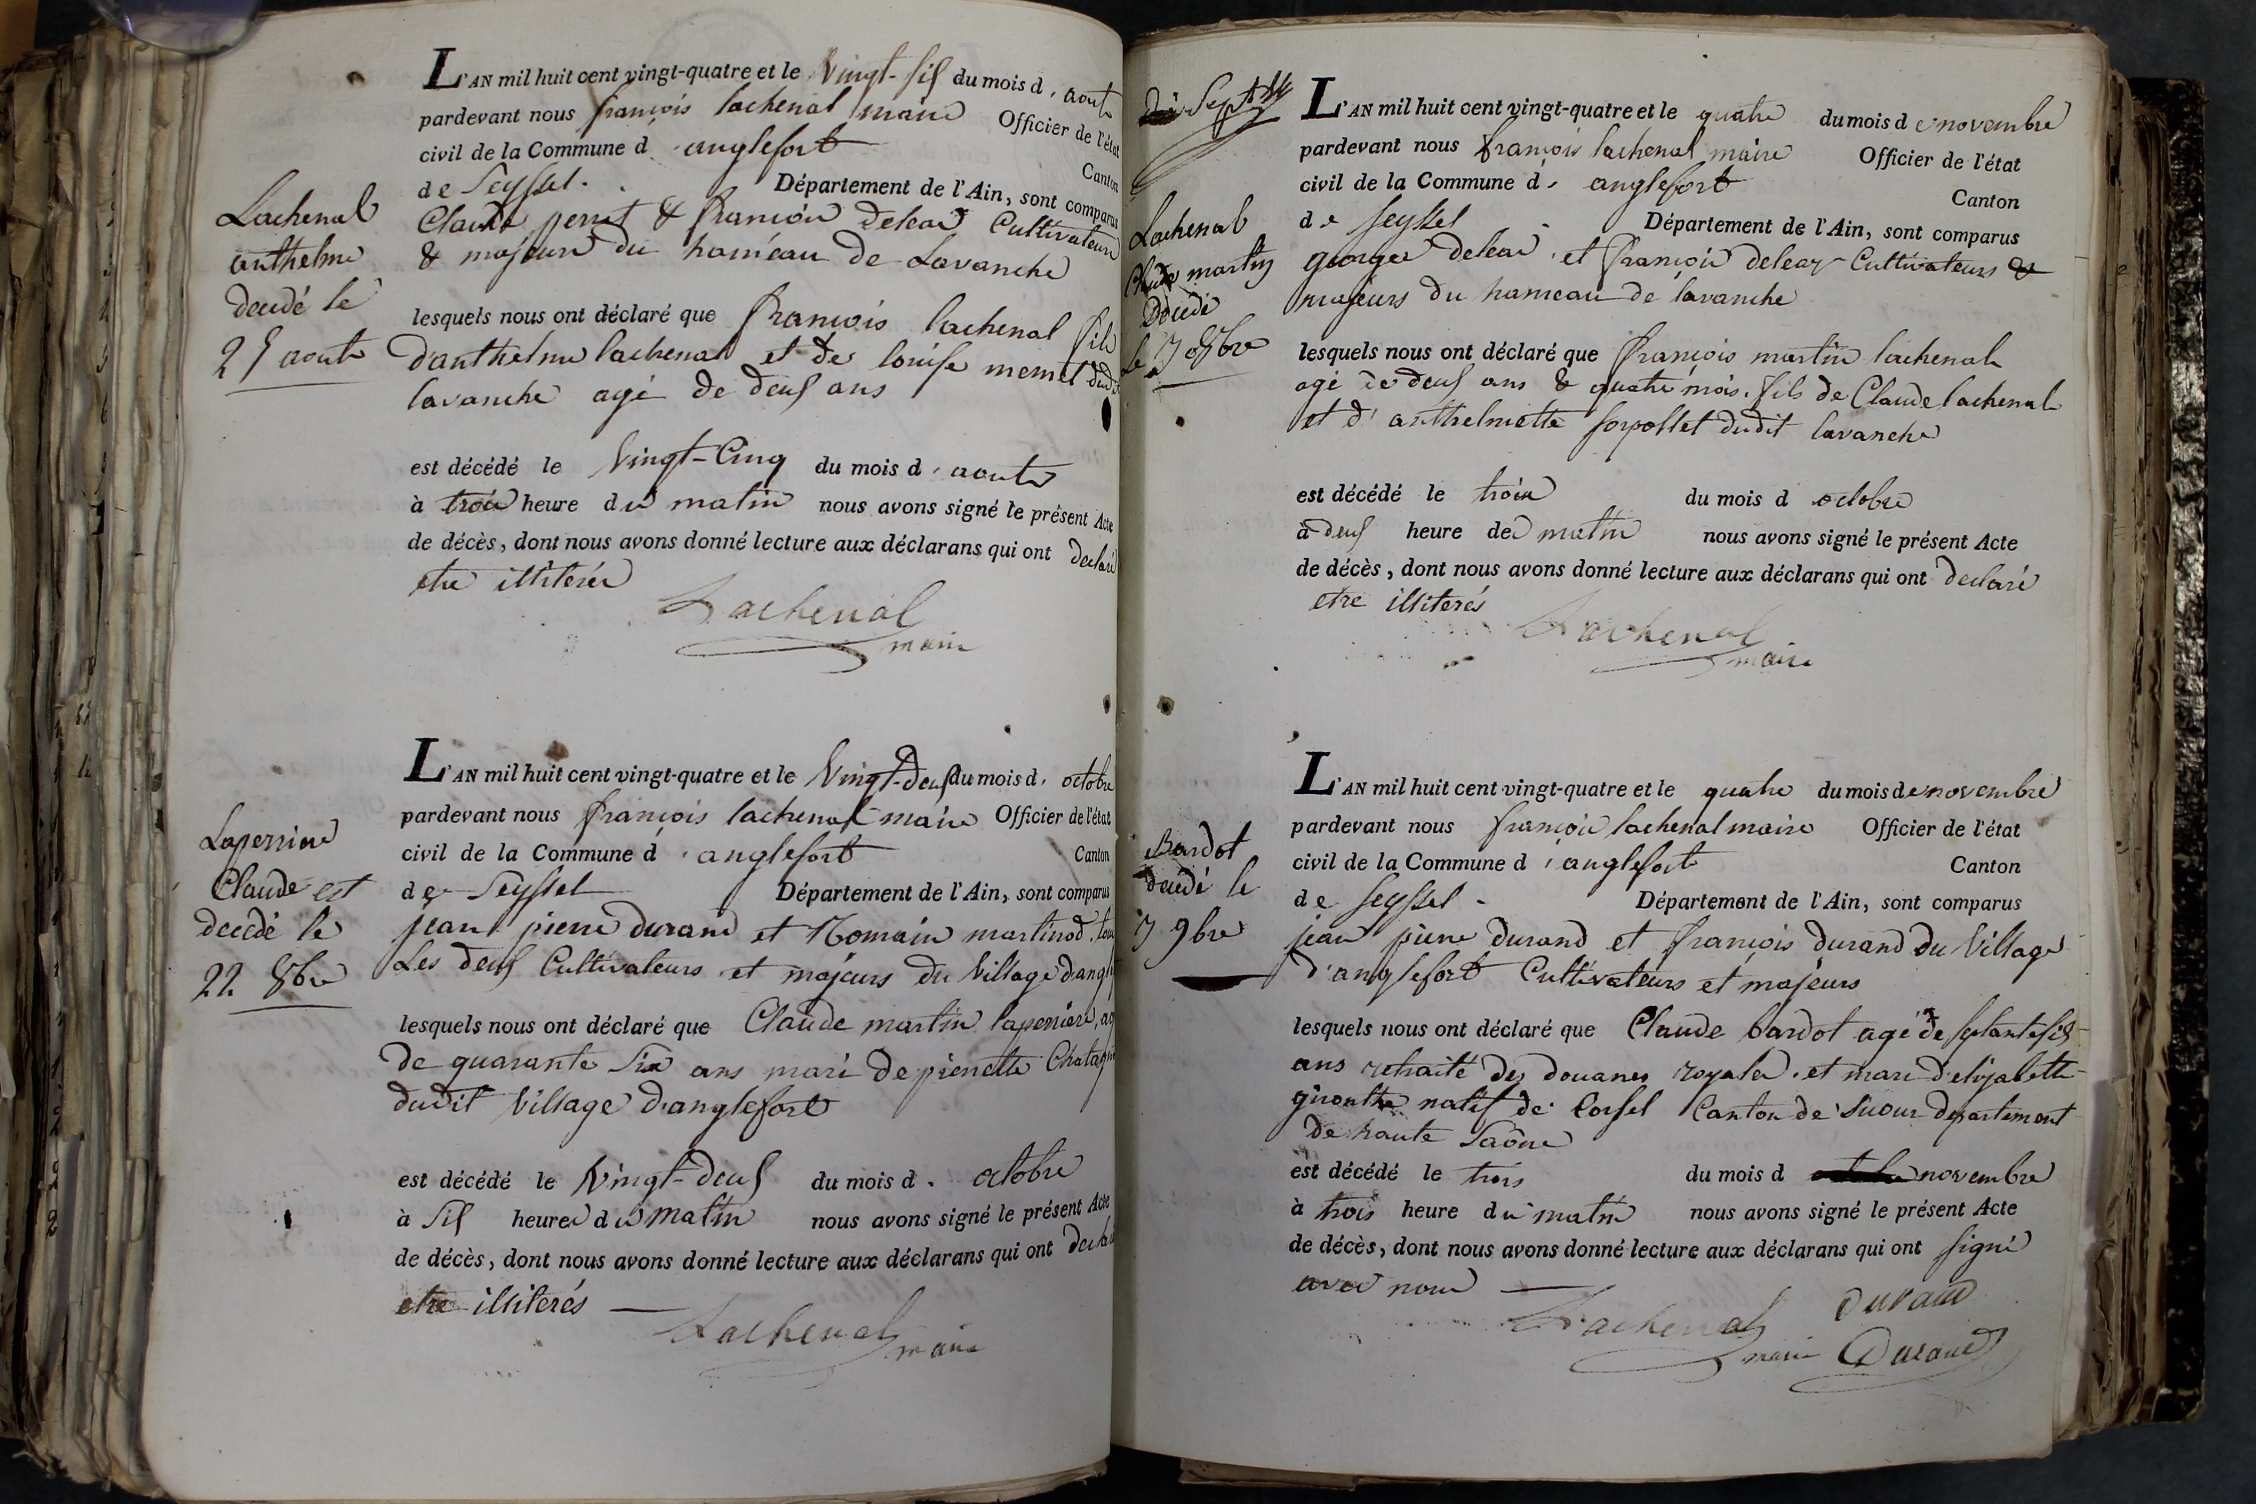 L'AN mil huit cent vingt-quatre et le vingt-six du mois d'aout
pardevant nous françois lachenal maire Officier de l'état
civil de la Commune d'anglefort Canton
de Seyssel. Département de l'Ain, sont comparus
Claude perret & françois deleaz Cultivateurs
& majeurs du hameau de Lavanche
lesquels nous ont déclaré que françois lachenal fils
d'anthelme lachenal et de louise memet dudit
lavanche agé de deux ans
est décédé le vingt-Cinq du mois d'aout
à trois heure du matin nous avons signé le présent Acte
de décès, dont nous avons donné lecture aux déclarans qui ont declaré
etre illiterés
Lachenal
maire
Lachenal
anthelme
decedé le
25 aout
L'AN mil huit cent vingt-quatre et le vingt-deux du mois d'octobre
pardevant nous françois lachenal maire Officier de l'état
civil de la Commune d'anglefort Canton
de Seyssel Département de l'Ain, sont comparus
jean pierre durand et Romain martinod tous
Les deux Cultivateurs et majeurs du village d'angle
lesquels nous ont déclaré que Claude martin laperriere, ag
de quarante six ans mari de pierrette
dudit village d'anglefort
est décédé le vingt-deux du mois d'octobre
à six heures du matin nous avons signé le présent Acte
de décès, dont nous avons donné lecture aux déclarans qui ont declaré
etre illiterés
Lachenal
maire
Laperriere
Claude est
decedé le
22 8bre
L'AN mil huit cent vingt-quatre et le quatre du mois de novembre
pardevant nous françois lachenal maire Officier de l'état
civil de la Commune d'anglefort Canton
de seyssel Département de l'Ain, sont comparus
george deleaz et françois deleaz Cultivateurs &
majeurs du hameau de lavanche
lesquels nous ont déclaré que françois martin lachenal
agé de deux ans & quatre mois. fils de Claude lachenal
et d'anthelmette dudit lavanche
est décédé le trois du mois d octobre
à deux heure de matin nous avons signé le présent Acte
de décès, dont nous avons donné lecture aux déclarans qui ont declaré
etre illiterés
Lachenal
maire
Lachenal
Claude martin
Décédé
le 3 8bre
L'AN mil huit cent vingt-quatre et le quatre du mois de novembre
pardevant nous françois lachenal maire Officier de l'état
civil de la Commune d'anglefort Canton
de seyssel. Département de l'Ain, sont comparus
jean pierre durand et françois durand du village
d'anglefort Cultivateurs et majeurs
lesquels nous ont déclaré que Claude bardot agé de septante six
ans retraité des douanes royales. et mari d'elizabette
natif de Canton de departement
de haute Saône
est décédé le trois du mois d novembre
à trois heure du matin nous avons signé le présent Acte
de décès, dont nous avons donné lecture aux déclarans qui ont signé
avec nous
Lachenal durand
maire Durand
Bardot
decedé le
3 9bre